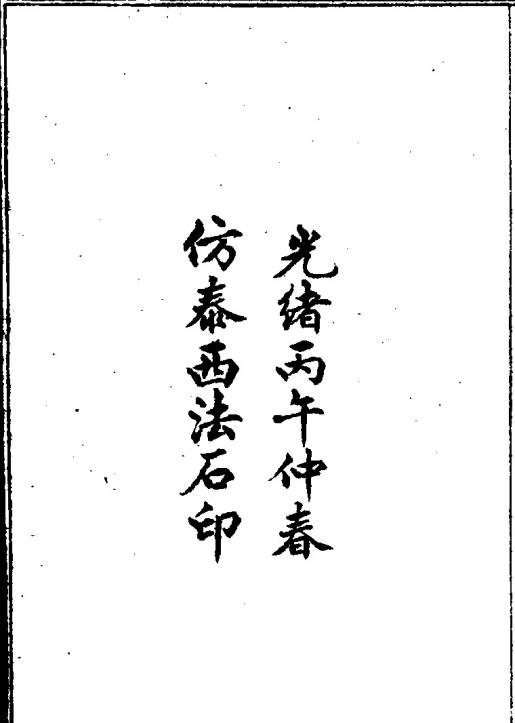 光緒丙午仲春
仿泰西法石印